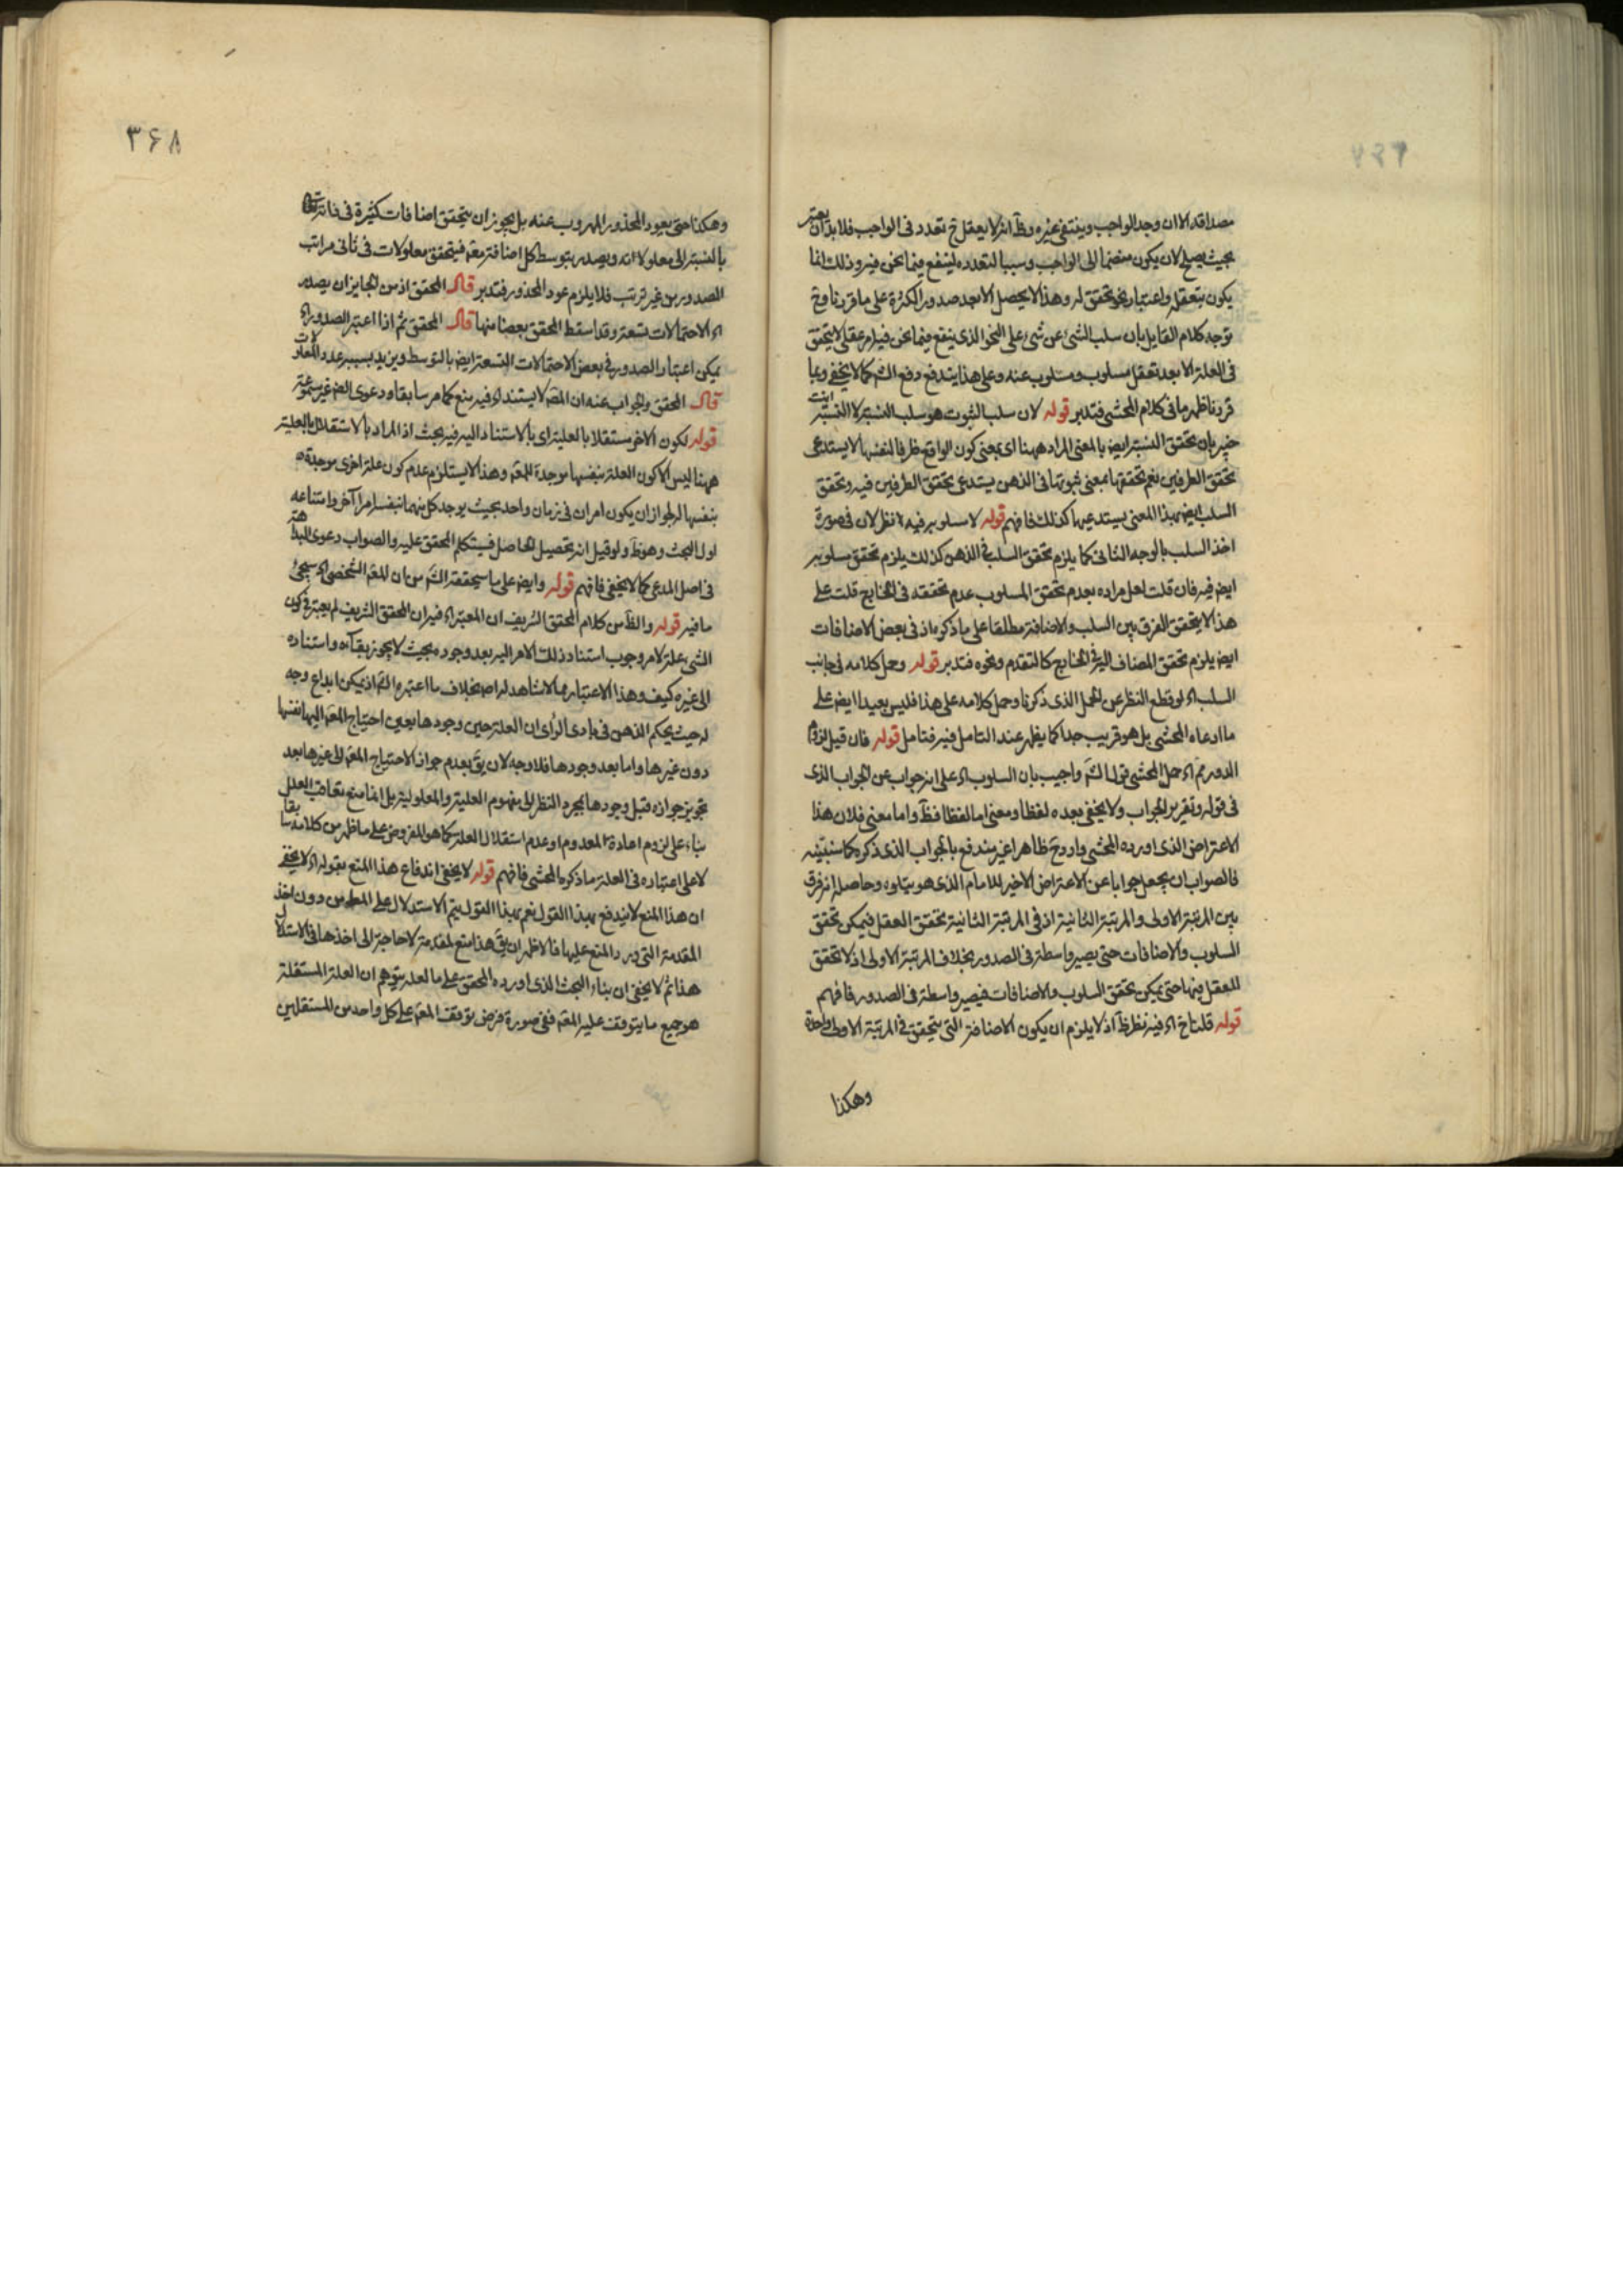 مصداقه الا ان وجد الواجب وينتفى غيره وظ انه لا يعقل ح تعدد فى الواجب فلا بد ان يعتبر
بحيث يصلح لان يكون منضما الى الواجب وسببا لتعدده لينفع فيما نحن فيه وذلك انما
يكون بتعقله واعتباره نحو تحقق له وهذا لا يحصل الا بعد صدور الكثرة على ما قررنا وح
توجه كلام القايل بان سلب الشئ عن شئ على النحو الذى ينفع فيما نحن فيه امر عقلى لا يتحقق
فى العلة الا بعد تعقل مسلوب ومسلوب عنه وعلى هذا يندفع دفع الش كما لا يخفى وبما
قررنا ظهر ما فى كلام المحشى فتدبر قوله لان سلب الثبوت هو سلب النسبة لا النسبة انت
خبير بان تحقق النسبة ايض بالمعنى المراد ههنا اى بمعنى كون الواقع ظرفا لنفسها لا يستدعى
تحقق الطرفين نعم تحققها بمعنى ثبوتها فى الذهن يستدعى تحقق الطرفين فيه وتحقق
السلب ايض بهذا المعنى يستدعيهما كذلك فافهم قوله لا سلوبه فيه نظر لان فى صورة
اخذ السلب بالوجه الثانى كما يلزم تحقق السلب فى الذهن كذلك يلزم تحقق سلوبه
ايض فيه فان قلت لعل مراده بعدم تحقق المسلوب عدم تحققه فى الخارج قلت على
هذا لا يتحقق الفرق بين السلب والاضافة مطلقا على ما ذكره اذ فى بعض الاضافات
ايض يلزم تحقق المضاف اليه فى الخارج كالتقدم ونحوه فتدبر قوله وحمل كلامه فى جانب
السلب اه لو قطع النظر عن الحمل الذى ذكرنا وحمل كلامه على هذا فليس بعيدا ايض على
ما ادعاه المحشى بل هو قريب جدا كما يظهر عند التامل فيه فتامل قوله فان قيل لزوم
الدور ثم اه حمل المحشى قول الش واجيب بان السلوب اه على انه جواب عن الجواب الذى
فى قوله وتقرير الجواب ولا يخفى بعده لفظا ومعنى اما لفظا فظ واما معنى فلان هذا
الاعتراض الذى اورده المحشى وارد وح ظاهرا غير مندفع بالجواب الذى ذكره كما سنبينه
فالصواب ان يجعل جوابا عن الاعتراض الاخير للامام الذى هو يتلوه وحاصله انه فرق
بين المرتبة الاولى والمرتبة الثانية اذ فى المرتبة الثانية تحقق العقل فيمكن تحقق
السلوب والاضافات حتى يصير واسطة فى الصدور بخلاف المرتبة الاولى اذ لا تحقق
للعقل فيها حتى يمكن تحقق السلوب والاضافات فيصير واسطة فى الصدور فافهم
قوله قلنا ح اه فيه نظر ظ اذ لا يلزم ان يكون الاضافة التى يتحقق فى المرتبة الاولى واحدة
وهكذا
۳۶۸
وهكذا حتى يعود المحذور المهروب عنه بل يجوز ان يتحقق اضافات كثيرة فى ذاته تعالى
بالنسبة الى معلولاته ويصدر بتوسط كل اضافة معه فيتحقق معلولات فى ثانى مراتب
الصدور من غير ترتب فلا يلزم عود المحذور فتدبر قال المحقق اذ من الجايز ان يصدر
اه الاحتمالات تسعة وقد اسقط المحقق بعضا منها قال المحقق ثم اذا اعتبر الصدور اه
يمكن اعتبار الصدور فى بعض الاحتمالات التسعة ايض بالتوسط ويزيد بسببه عدد المعلولات
قال المحقق والجواب عنه ان المص لا يستند اه فيه منع كما مر سابقا ودعوى الضم غير مسموعة
قوله لكون الاخر مستقلا بالعلية اى بالاستناد اليه فيه بحث اذ المراد بالاستقلال بالعلية
ههنا ليس الا كون العلة بنفسها موجدة للمعه وهذا لا يستلزم عدم كون علة اخرى موجدة
بنفسها له لجواز ان يكون امران فى زمان واحد بحيث يوجد كل منهما بنفسه امرا آخر وامتناعه
اول البحث وهو ظ ولو قيل انه تحصيل الحاصل فسيتكلم المحقق عليه والصواب دعوى البداهة
فى اصل المدعى كما لا يخفى فافهم قوله وايض على ما سيحققه الش من ان المعه الشخصى اه سيجئ
ما فيه قوله والظ من كلام المحقق الشريف ان المعتبر اه فيه ان المحقق الشريف لم يعتبر فى كون
الشئ علة لامر وجوب استناد ذلك الامر اليه بعد وجوده بحيث لا يجوز بقاءه واستناده
الى غيره كيف وهذا الاعتبار مما لا شاهد له اصلا بخلاف ما اعتبره الش اذ يمكن ابداع وجه
له حيث يحكم الذهن فى بادى الرأى ان العلة حين وجودها يعين احتياج المعه اليها نفسها
دون غيرها واما بعد وجودها فلا وجه لان يق بعدم جواز الاحتياج المعه الى غيرها بعد
تجويز جوازه قبل وجودها بمجرد النظر الى مفهوم العلية والمعلولية بل انما منع تعاقب العلل
بناء على لزوم اعادة المعدوم او عدم استقلال العلة كما هو المفروض على ما ظهر من كلامه سابقا
لا على اعتباره فى العلة ما ذكره المحشى فافهم قوله لا يخفى اندفاع هذا المنع بقوله اه لا يخفى
ان هذا المنع لا يندفع بهذا القول نعم بهذا القول يتم الاستدلال على المط من دون اخذ
المقدمة التى ورد المنع عليها فالاظهر ان يق هذا منع لمقدمة لا حاجة الى اخذها فى الاستدلال
هذا ثم لا يخفى ان بناء البحث الذى اورده المحقق على ما لعله يتوهم ان العلة المستقلة
هو جميع ما يتوقف عليه المعه ففى صورة فرض توقف المعه على كل واحد من المستقلين